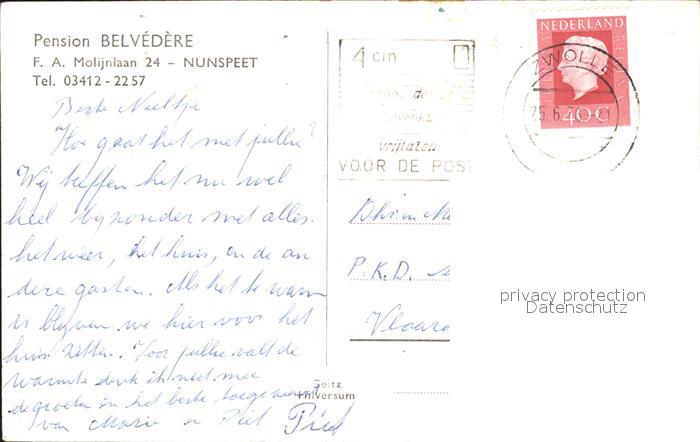 Pension BELVÉDÈRE
F. A. Molijnlaan 24 – NUNSPEET
Tel. 03412 - 2257
Beste Neeltje
Hoe gaat het met jullie?
Wij treffen het nu wel
heel byzonder met alles.
het weer, het huis, en de an
dere gasten. Als het te warm
is blyven we hier voor het
huis zitten. Voor jullie valt de
warmte denk ik niet mee
de groeten en het beste toegewenst
van Marie en Piet
4 cm
vrijlaten
VOOR DE POST
NEDERLAND
ZWOLLE
25.6
40 c
P.K.D.
Vlaard
privacy protection
Datenschutz
Geitz
Hilversum